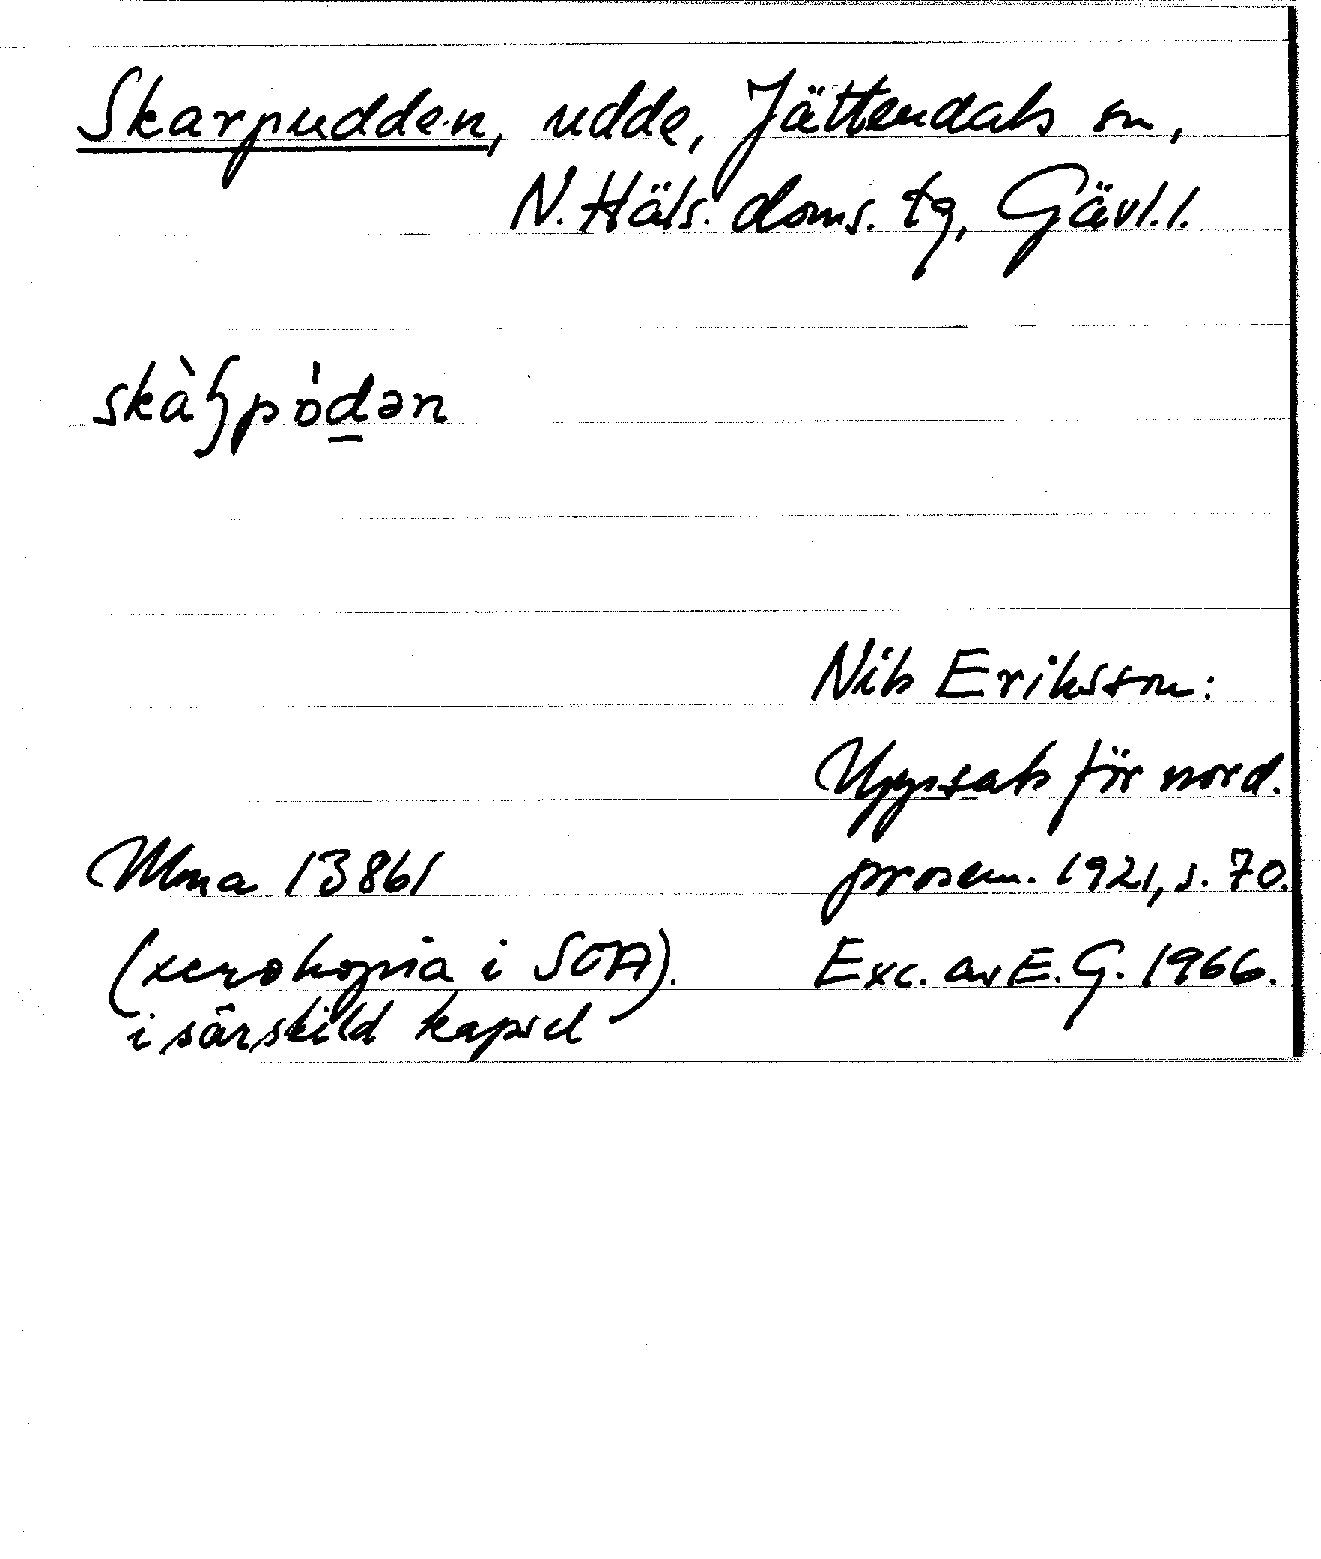 Skarpudden, udde, Jättendals sn,
N. Häls. doms. tg, Gävl. l.
skàꞎpòd̲ən
Nils Eriksson:
Uppsats för nord.
Ulma 13861 prosem. 1921, s. 70.
(xerokopia i SOA). Exc. av E. G. 1966.
i särskild kapsel